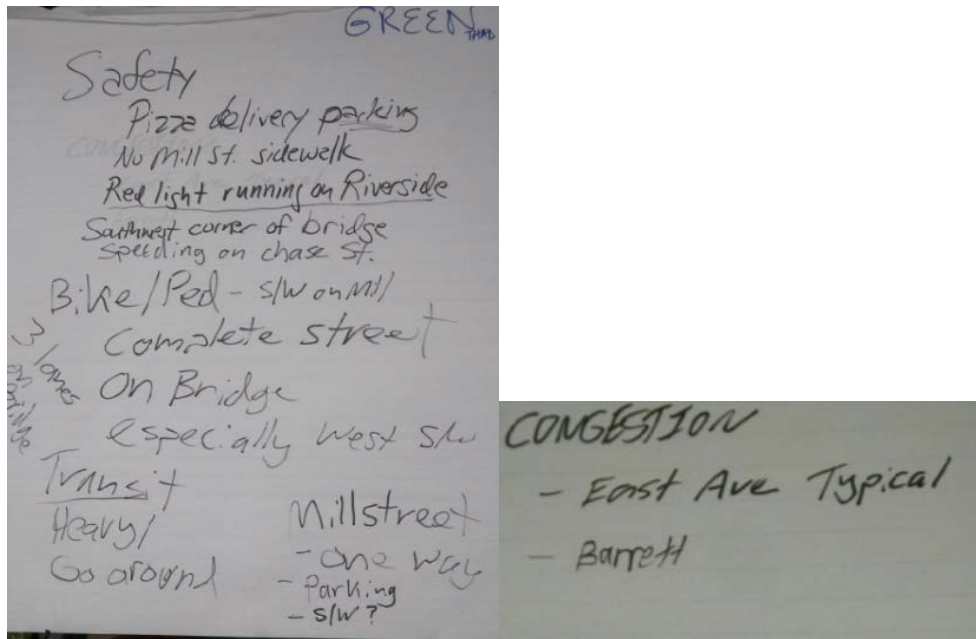 GREEN
THAD
Safety
Pizza delivery parking
No Mill St. sidewalk
Red light running on Riverside
Southwest corner of bridge
speeding on chase St.
Bike/Ped - S/W on Mill
Complete street
On Bridge
especially West S/W
3 lanes
on bridge
Transit
Heavy/
Go around
Millstreet
- one way
- Parking
- S/W ?
CONGESTION
- East Ave Typical
- Barrett